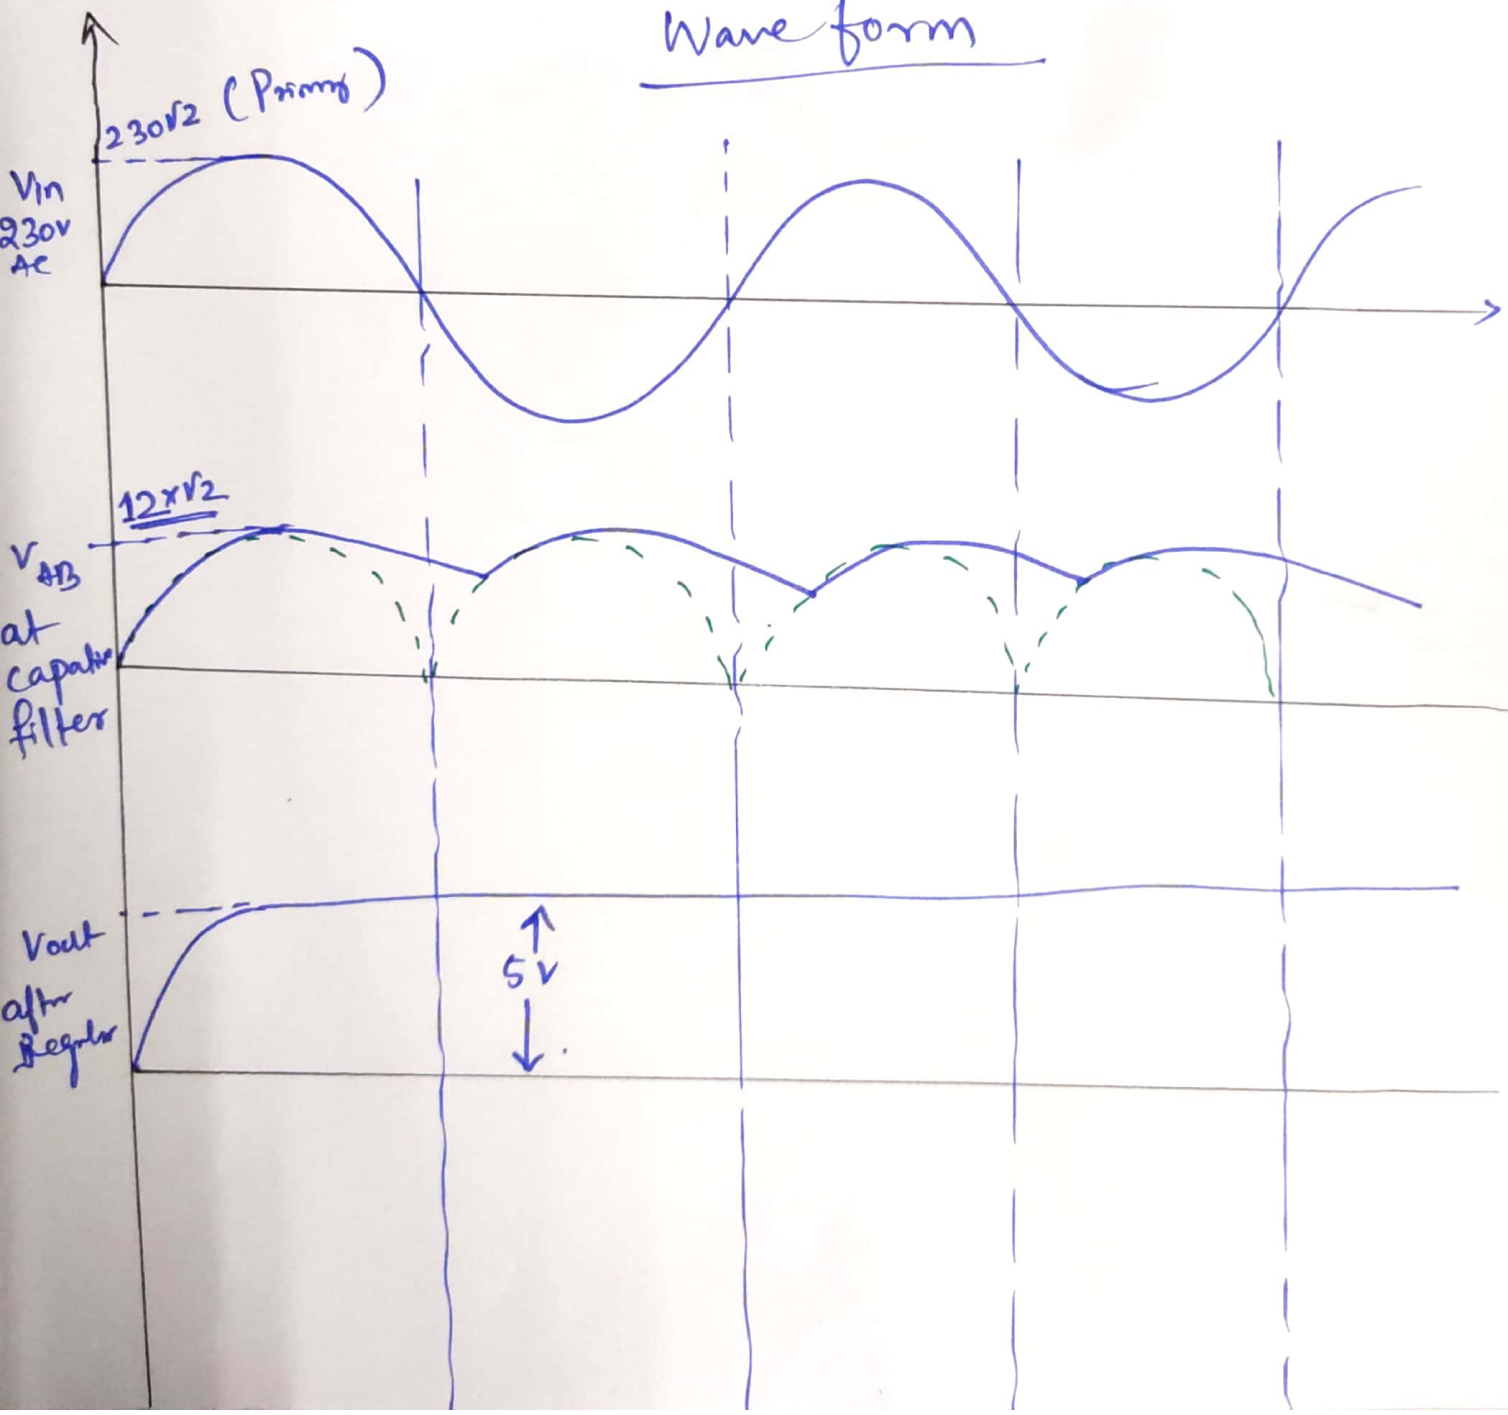 Wave form
230√2 (Primy)
Vin
230v
AC
12x√2
VAB
at
capatr
filter
Vout
after
Regulr
5 V